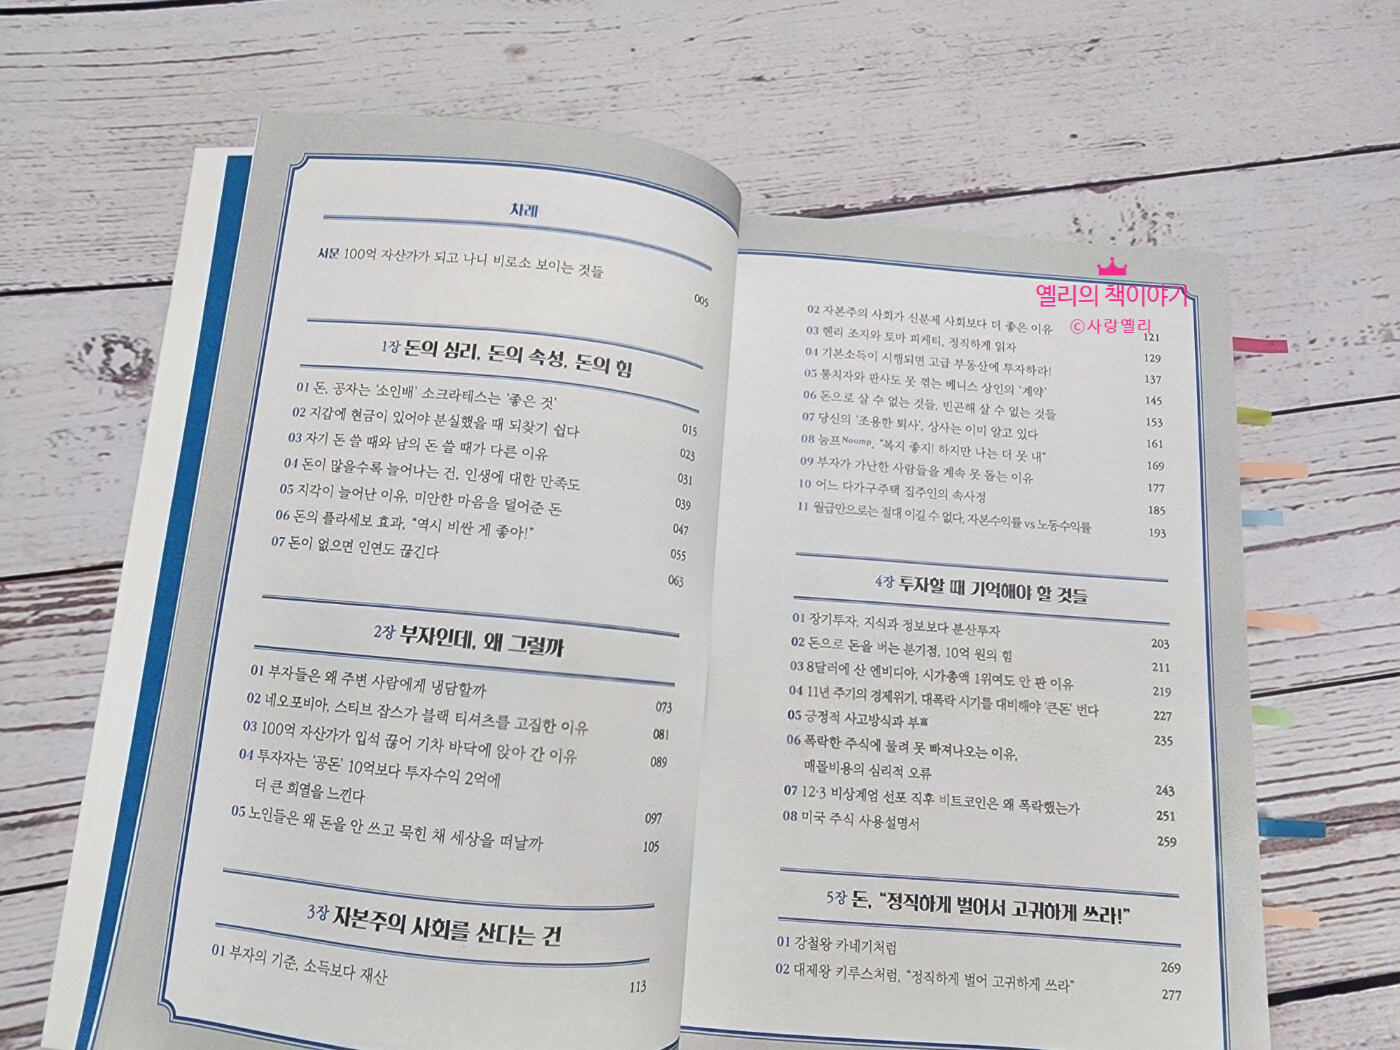 차례
서문 100억 자산가가 되고 나니 비로소 보이는 것들
005
1장 돈의 심리, 돈의 속성, 돈의 힘
01 돈, 공자는 '소인배' 소크라테스는 '좋은 것'
015
02 지갑에 현금이 있어야 분실했을 때 되찾기 쉽다
023
03 자기 돈 쓸 때와 남의 돈 쓸 때가 다른 이유
031
04 돈이 많을수록 늘어나는 건, 인생에 대한 만족도
039
05 지각이 늘어난 이유, 미안한 마음을 덜어준 돈
047
06 돈의 플라세보 효과, "역시 비싼 게 좋아!"
055
07 돈이 없으면 인연도 끊긴다
063
2장 부자인데, 왜 그럴까
01 부자들은 왜 주변 사람에게 냉담할까
073
02 네오포비아, 스티브 잡스가 블랙 티셔츠를 고집한 이유
081
03 100억 자산가가 입석 끊어 기차 바닥에 앉아 간 이유
089
04 투자자는 '공돈' 10억보다 투자수익 2억에
더 큰 희열을 느낀다
097
05 노인들은 왜 돈을 안 쓰고 묵힌 채 세상을 떠날까
105
3장 자본주의 사회를 산다는 건
01 부자의 기준, 소득보다 재산
113
옐리의 책이야기
©사랑옐리
02 자본주의 사회가 신분제 사회보다 더 좋은 이유
121
03 헨리 조지와 토마 피케티, 정직하게 읽자
129
04 기본소득이 시행되면 고급 부동산에 투자하라!
137
05 통치자와 판사도 못 꺾는 베니스 상인의 '계약'
145
06 돈으로 살 수 없는 것들, 빈곤해 살 수 없는 것들
153
07 당신의 '조용한 퇴사', 상사는 이미 알고 있다
161
08 눔프Noomp, "복지 좋지! 하지만 나는 더 못 내"
169
09 부자가 가난한 사람들을 계속 못 돕는 이유
177
10 어느 다가구주택 집주인의 속사정
185
11 월급만으로는 절대 이길 수 없다, 자본수익률 vs 노동수익률
193
4장 투자할 때 기억해야 할 것들
01 장기투자, 지식과 정보보다 분산투자
203
02 돈으로 돈을 버는 분기점, 10억 원의 힘
211
03 8달러에 산 엔비디아, 시가총액 1위여도 안 판 이유
219
04 11년 주기의 경제위기, 대폭락 시기를 대비해야 '큰돈' 번다
227
05 긍정적 사고방식과 부富
235
06 폭락한 주식에 물려 못 빠져나오는 이유,
매몰비용의 심리적 오류
243
07 12·3 비상계엄 선포 직후 비트코인은 왜 폭락했는가
251
08 미국 주식 사용설명서
259
5장 돈, "정직하게 벌어서 고귀하게 쓰라!"
01 강철왕 카네기처럼
269
02 대제왕 키루스처럼, "정직하게 벌어 고귀하게 쓰라"
277